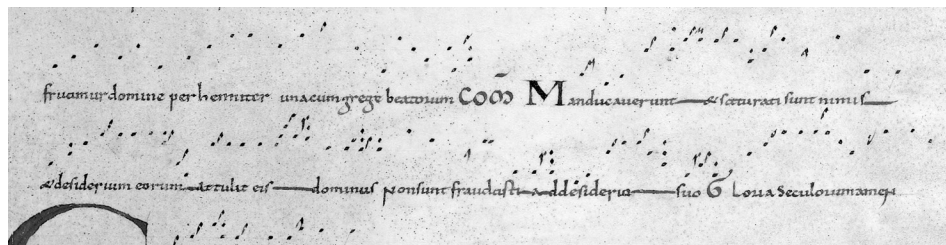 fruamur domine perhenniter unacum grege beatorum COM Manducauerunt & saturati sunt nimis
& desiderium eorum attulit eis dominus non sunt fraudati a desiderio suo Gloria Seculorum amen